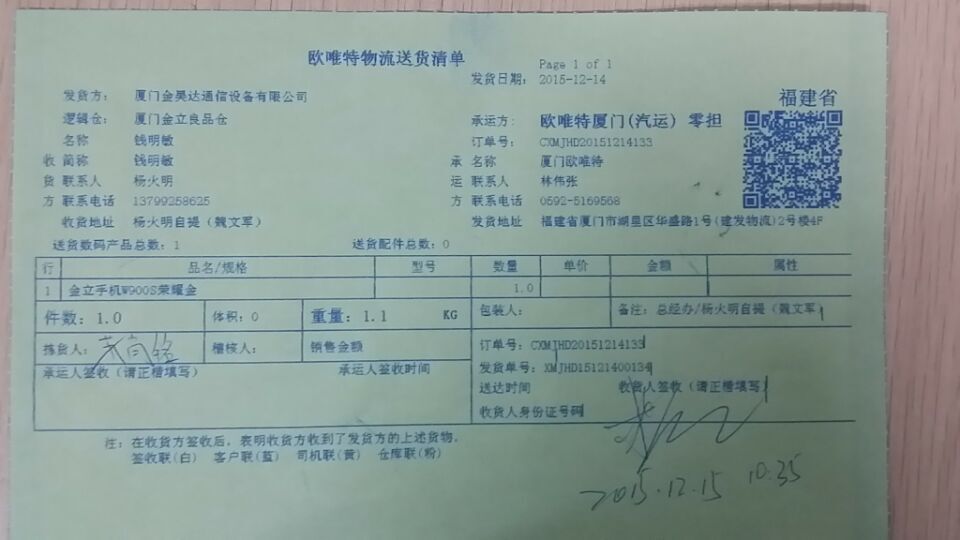 欧唯特物流送货清单
Page 1 of 1
发货日期: 2015-12-14
福建省
发货方: 厦门金昊达通信设备有限公司
逻辑仓: 厦门金立良品仓
承运方: 欧唯特厦门(汽运) 零担
名称 钱明敏
订单号: CXMJHD20151214133
收 简称 钱明敏
承 名称 厦门欧唯特
货 联系人 杨火明
运 联系人 林伟张
方 联系电话 13799258625
方 联系电话 0592-5169568
收货地址 杨火明自提（魏文军）
发货地址 福建省厦门市湖里区华盛路1号(建发物流)2号楼4F
送货数码产品总数: 1 送货配件总数: 0
行 品名/规格 型号 数量 单价 金额 属性
1 金立手机W900S荣耀金 1.0
件数: 1.0 体积: 0 重量: 1.1 KG 包装人: 备注: 总经办/杨火明自提（魏文军
拣货人: 稽核人: 销售金额
订单号: CXMJHD20151214133
承运人签收（请正楷填写） 承运人签收时间
发货单号: XMJHD15121400134
送达时间 收货人签收（请正楷填写）
收货人身份证号码
注: 在收货方签收后, 表明收货方收到了发货方的上述货物,
签收联(白) 客户联(蓝) 司机联(黄) 仓库联(粉)
2015.12.15 10:35